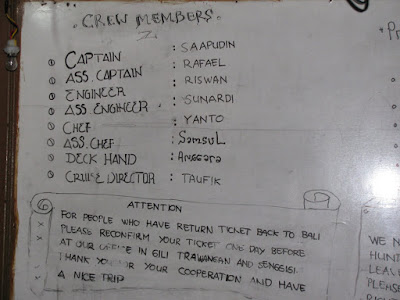 CREW MEMBERS.
CAPTAIN : SAAPUDIN
ASS. CAPTAIN : RAFAEL
ENGINEER : RISWAN
ASS. ENGINEER : SUNARDI
CHEF : YANTO
ASS. CHEF : SAMSUL
DECK HAND : ANGGARA
CRUISE DIRECTOR : TAUFIK
ATTENTION
FOR PEOPLE WHO HAVE RETURN TICKET BACK TO BALI
PLEASE RECONFIRM YOUR TICKET ONE DAY BEFORE
AT OUR OFFICE IN GILI TRAWANGAN AND SENGGIGI.
THANK YOU FOR YOUR COOPERATION AND HAVE
A NICE TRIP
WE N
HUNT
LEAV
PLEASE